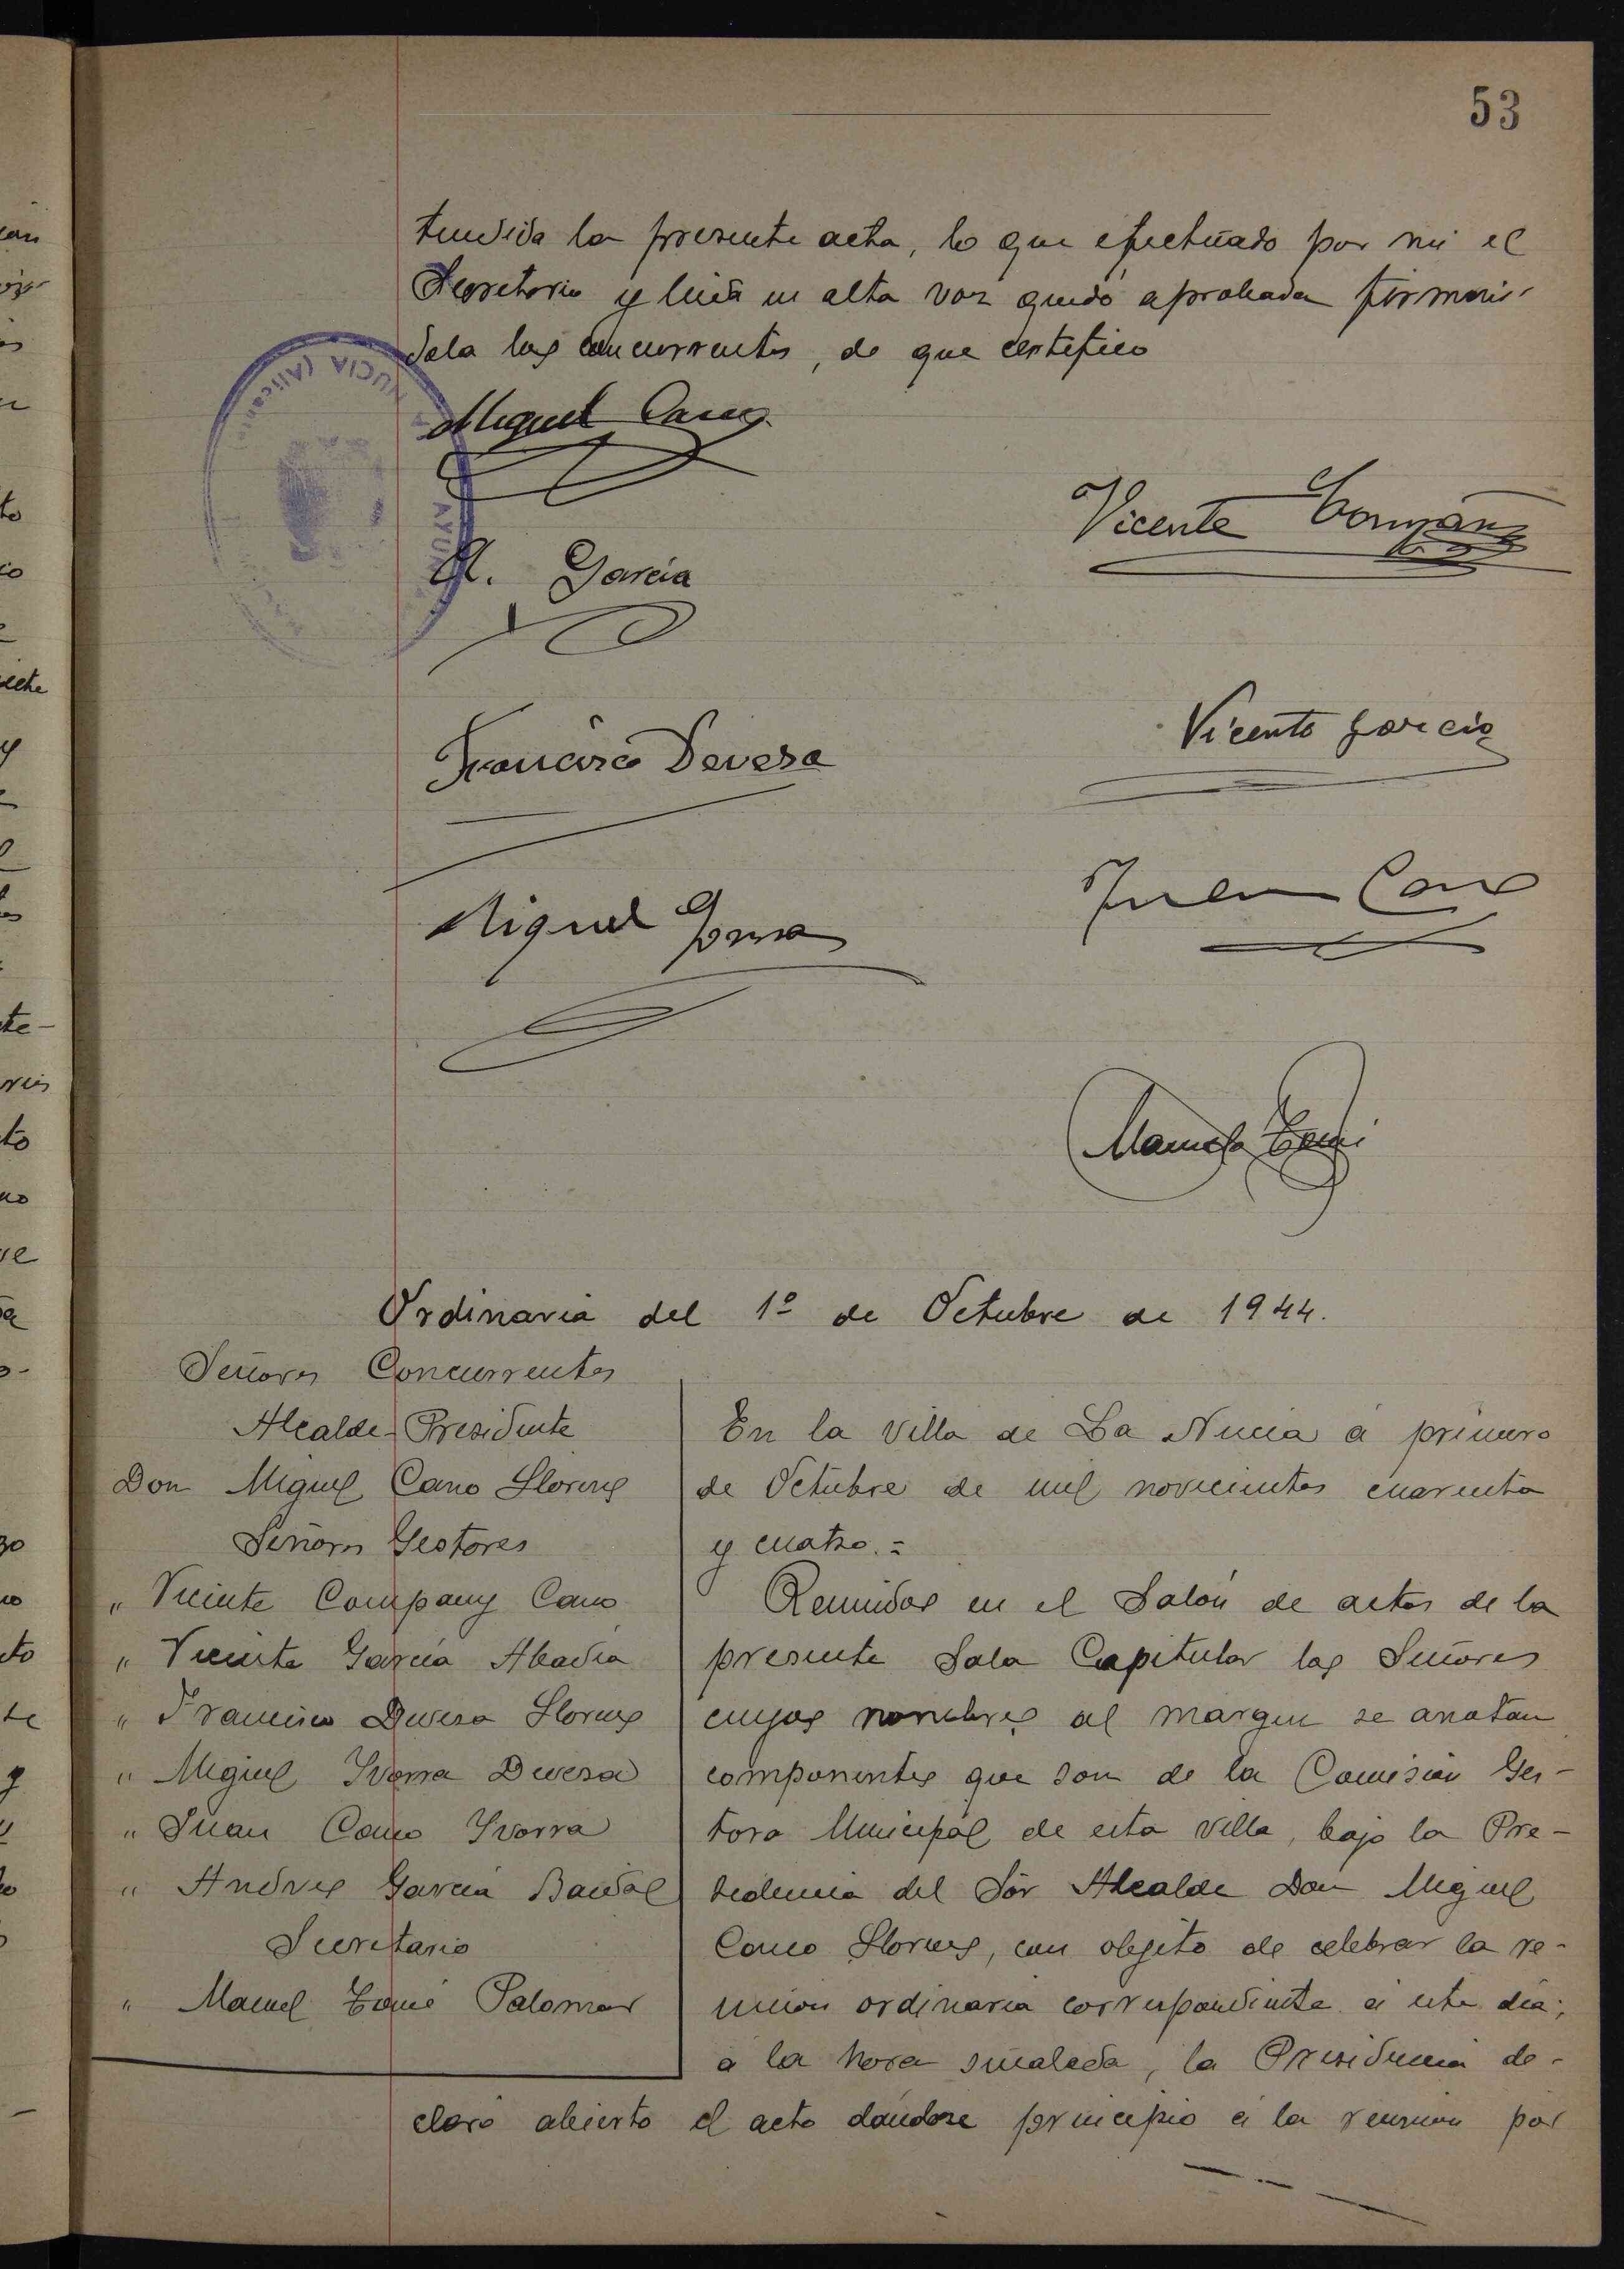 53
tendida la presente acta, lo que efectuado por mi el
Secretario y leida en alta voz quedó aprobada firman-
dola los concurrentes, de que certifico
Miguel Cano
Vicente Company
A. García
Francisco Devesa
Vicente Garcia
Miguel Ivorra
Juan Cano
Manuel Tomé
Ordinaria del 1º de Octubre de 1944.
Señores Concurrentes
Alcalde-Presidente
Don Miguel Cano Llorens
Señores Gestores
" Vicente Company Cano
" Vicente García Abadía
" Francisco Devesa Llorens
" Miguel Yvorra Devesa
" Juan Cano Yvorra
" Andres García
Secretario
" Manuel Tomé Palomar
En la villa de La Nucia á primero
de Octubre de mil novecientos cuarenta
y cuatro.=
Reunidos en el Salón de actos de la
presente Sala Capitular los Señores
cuyos nombres al margen se anotan
componentes que son de la Comision Ges-
tora Municipal de esta villa, bajo la Pre-
sidencia del Sór Alcalde Don Miguel
Cano Llorens, con objeto de celebrar la re-
unión ordinaria correspondiente a este día;
a la hora señalada, la Presidencia de-
claró abierto el acto dándose principio a la reunion por